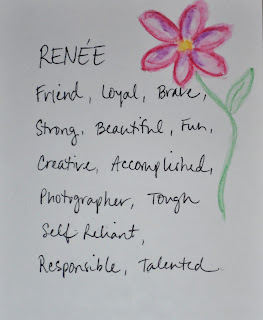 RENÉE
Friend, Loyal, Brave,
Strong, Beautiful, Fun,
Creative, Accomplished,
Photographer, Tough
Self-Reliant,
Responsible, Talented